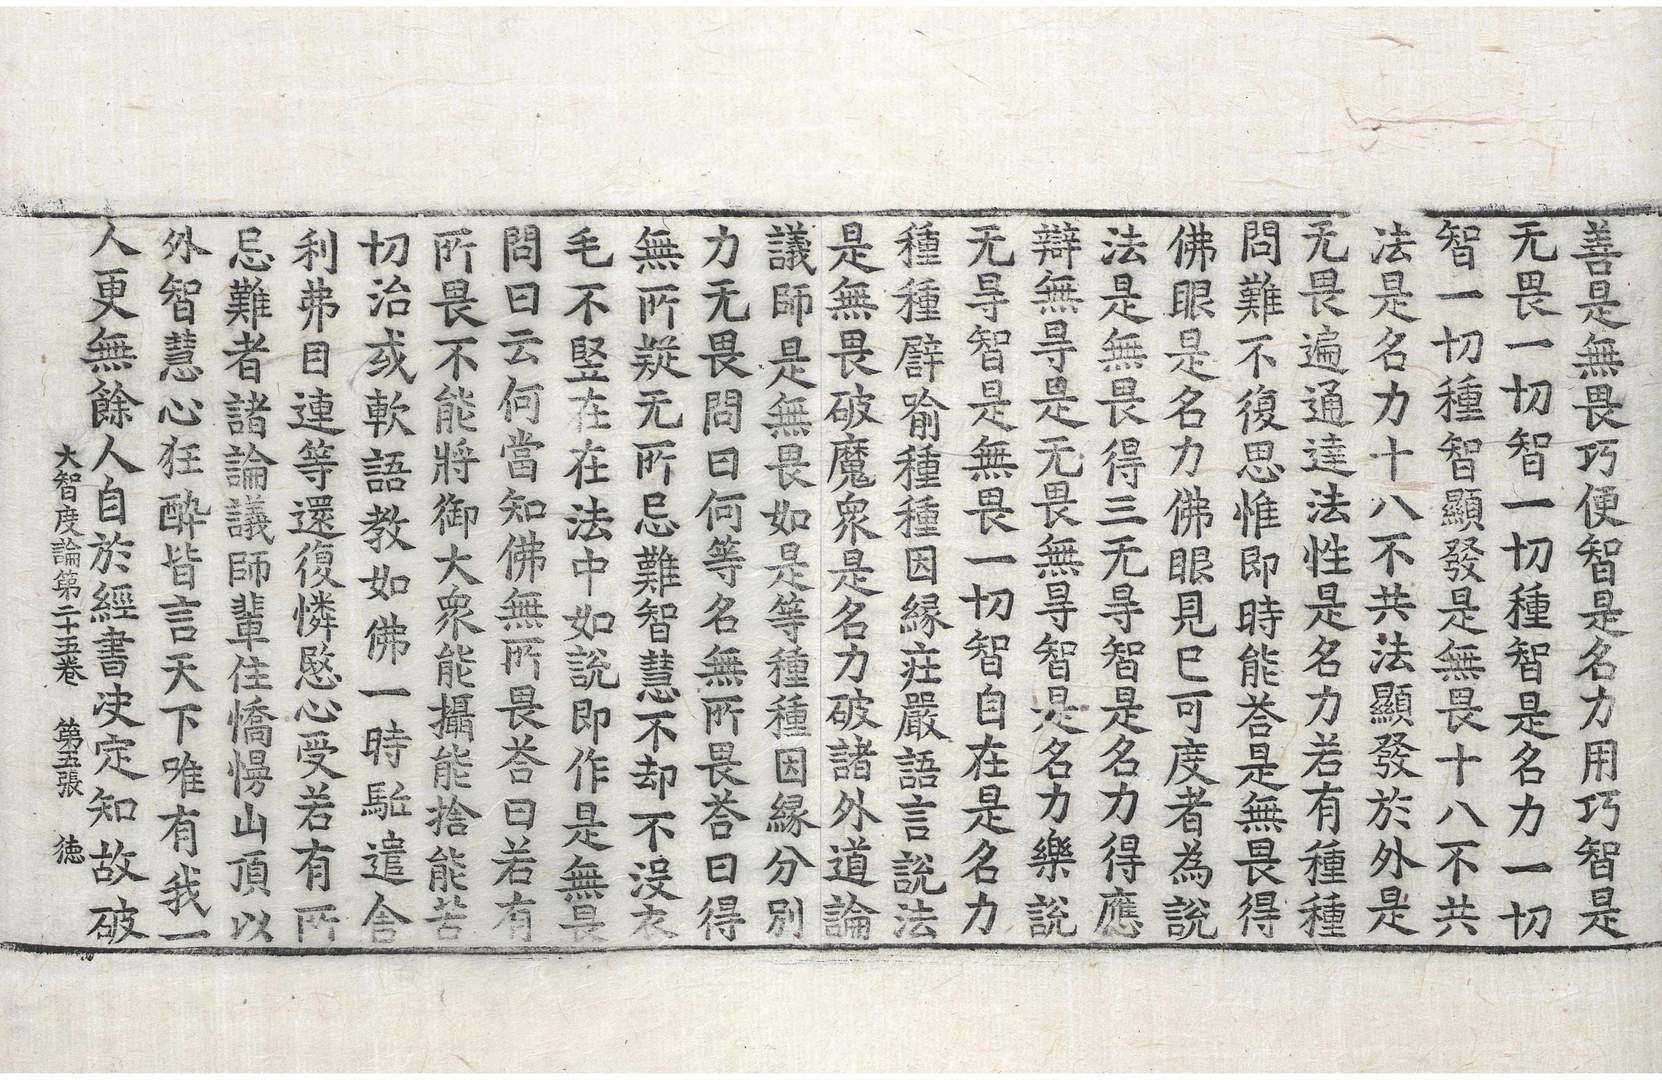 善是無畏巧便智是名力用巧智是
无畏一切智一切種智是名力一切
智一切種智顯發是無畏十八不共
法是名力十八不共法顯發於外是
无畏遍通達法性是名力若有種種
問難不復思惟即時能荅是無畏得
佛眼是名力佛眼見已可度者為說
法是無畏得三无㝵智是名力得應
辯無㝵是无畏無㝵智是名力樂說
无㝵智是無畏一切智自在是名力
種種譬喻種種因緣莊嚴語言說法
是無畏破魔衆是名力破諸外道論
議師是無畏如是等種種因緣分別
力无畏問曰何等名無所畏荅曰得
無所疑无所忌難智慧不却不沒衣
毛不竪在在法中如說即作是無畏
問曰云何當知佛無所畏荅曰若有
所畏不能將御大衆能攝能捨能苦
切治或軟語教如佛一時駈遣舍
利弗目連等還復憐愍心受若有所
忌難者諸論議師輩住憍慢山頂以
外智慧心狂醉皆言天下唯有我一
人更無餘人自於經書決定知故破
大智度論第二十五卷　第五張　德